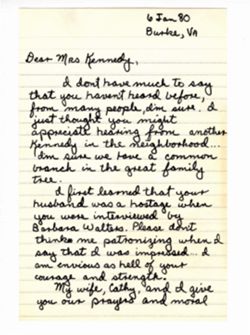 6 Jan 80
Burke, VA
Dear Mrs Kennedy,
I don't have much to say
that you haven't heard before,
from many people, I'm sure. I
just thought you might
appreciate hearing from another
Kennedy in the neighborhood...
I'm sure we have a common
branch in the great family
tree.
I first learned that your
husband was a hostage when
you were interviewed by
Barbara Walters. Please don't
think me patronizing when I
say that I was impressed... I
am envious as hell of your
courage and strength.
My wife, Cathy, and I give
you our prayers and moral